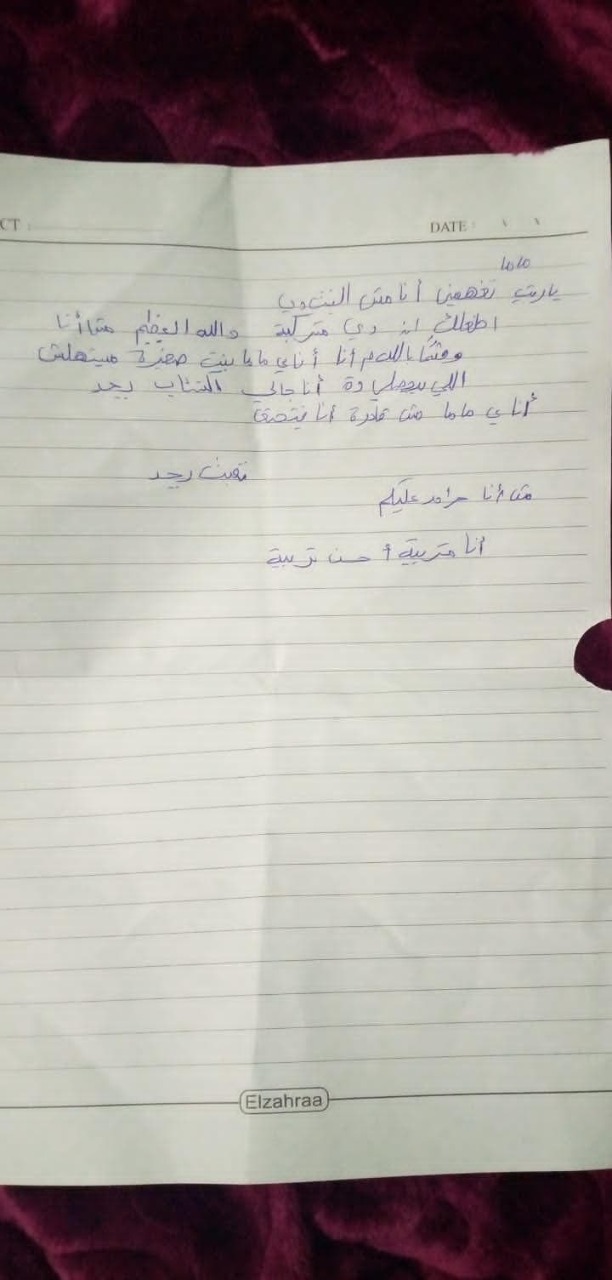 CT :
DATE : \ \
ماما
ياريت تفهمينى أنا مش البنت دي
دي متركبة والله العظيم مش أنا
وقسمًا بالله م أنا أنا ياماما بنت صغيرة مستهلش
اللي بيحصلي دة أنا جالي اكتئاب بجد
أنا ي ماما مش قادرة أنا بتخنق
تعبت بجد
مش أنا حرام عليكم
أنا متربية أحسن تربية
Elzahraa